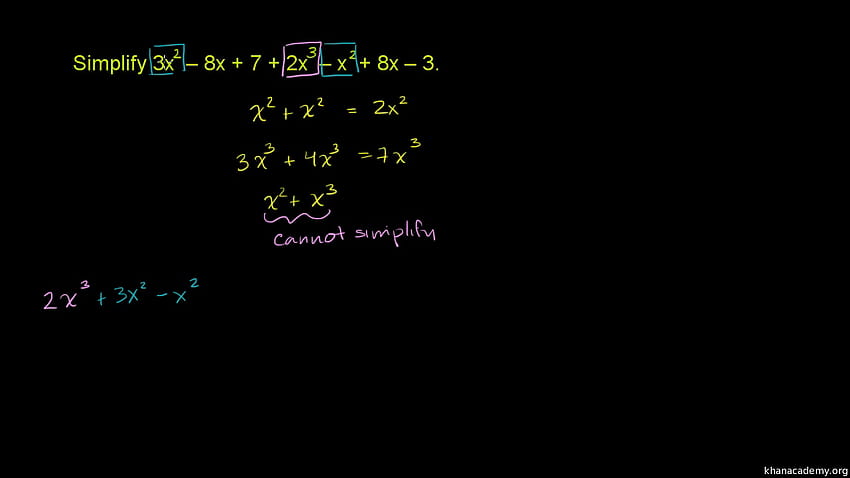 Simplify 3x² – 8x + 7 + 2x³ – x² + 8x – 3.
x² + x² = 2x²
3x³ + 4x³ = 7x³
x² + x³
cannot simplify
2x³ + 3x² - x²
khanacademy.org